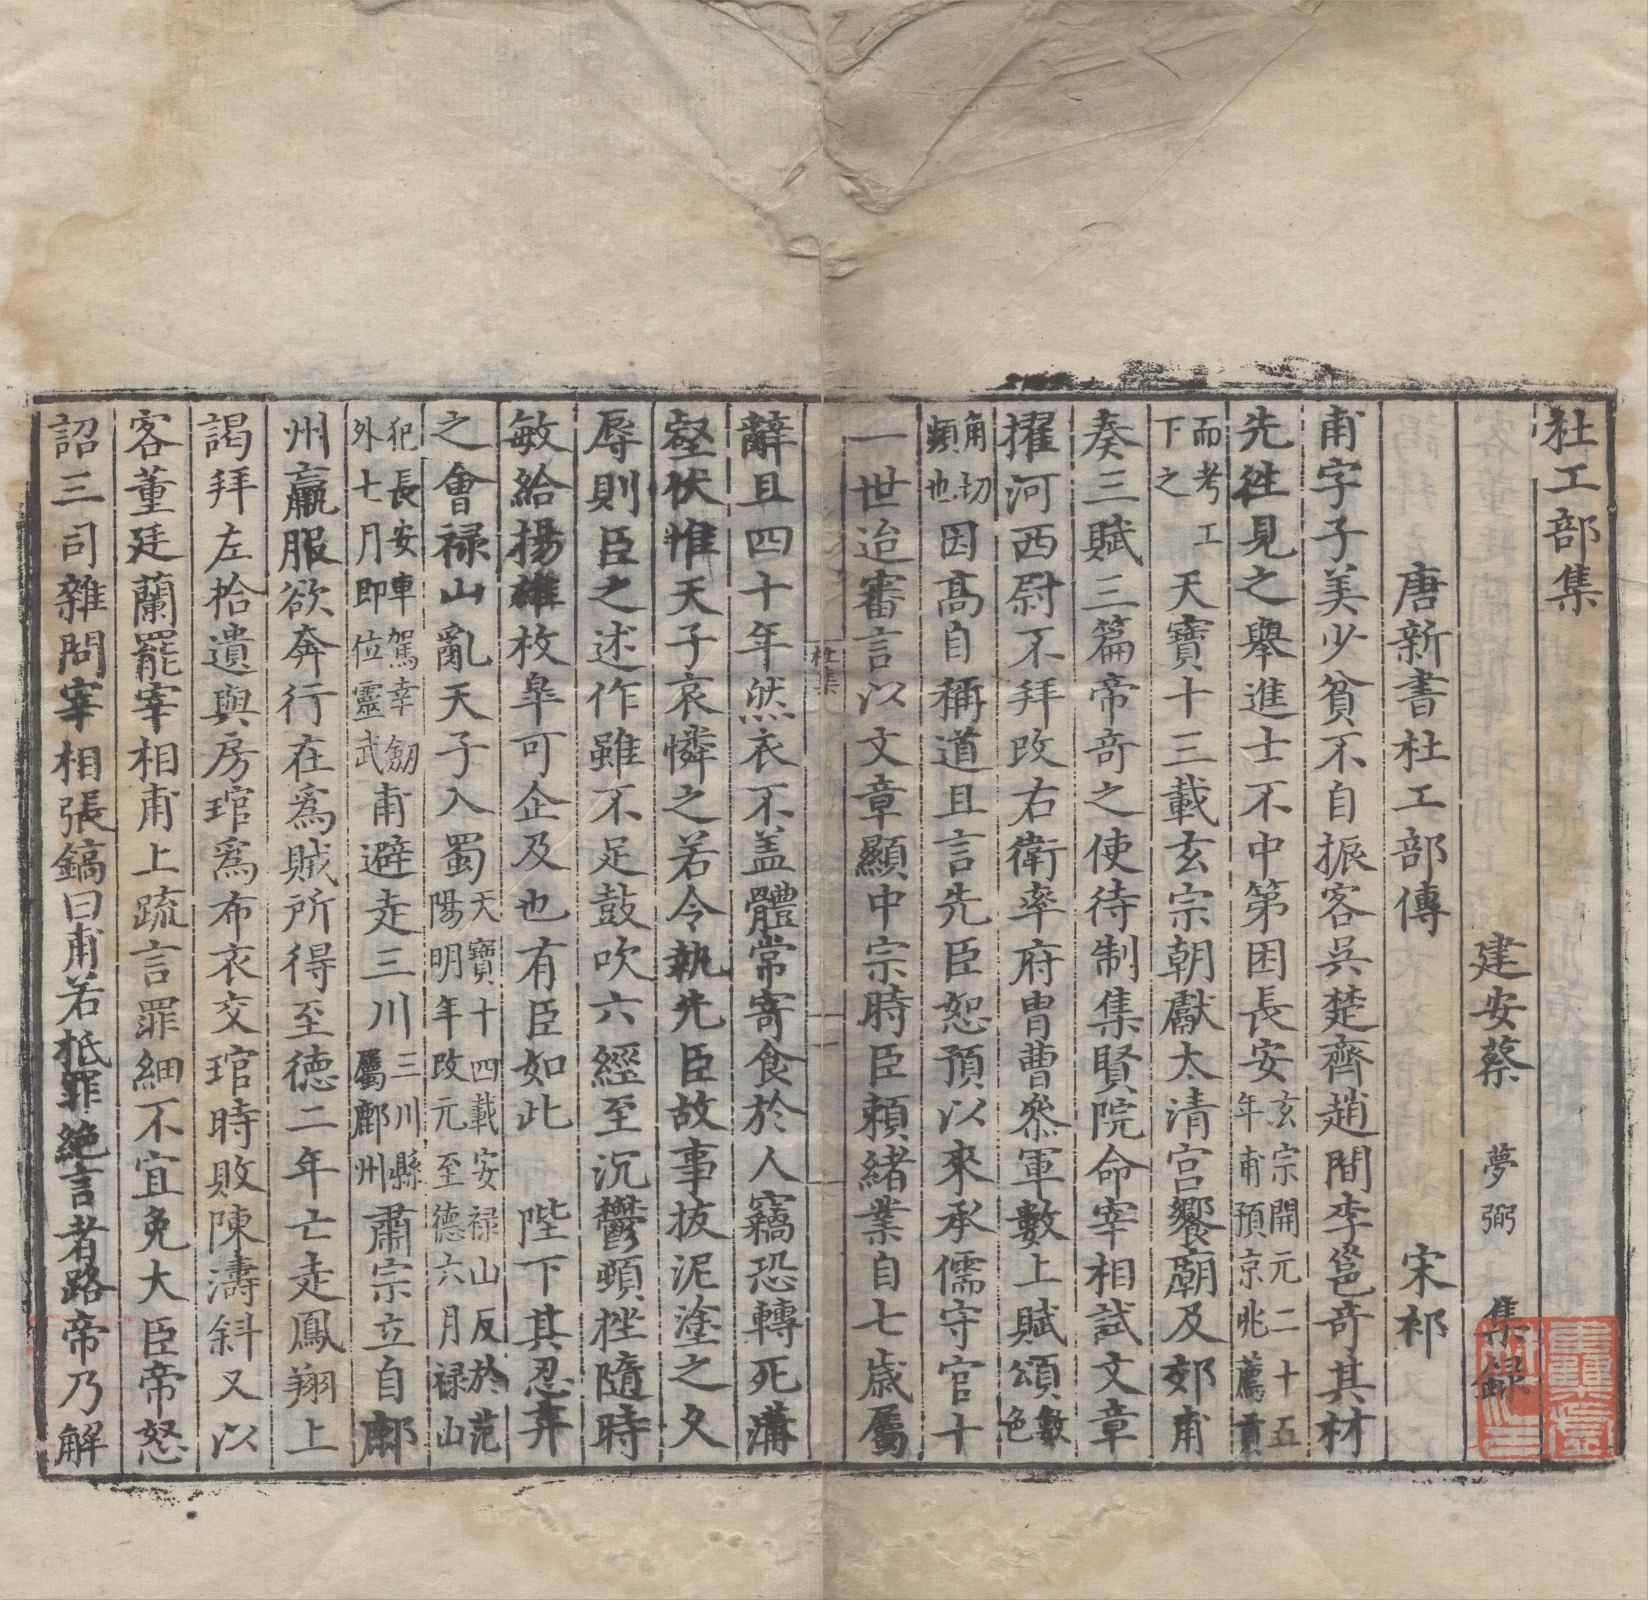 杜工部集
建安蔡 夢弼 集錄
唐新書杜工部傳 宋祁
甫字子美少貧不自振客吳楚齊趙間李邕奇其材
先徃見之舉進士不中第困長安玄宗開元二十五年甫預京兆薦貢
而考工下之天寶十三載玄宗朝獻太清宮饗廟及郊甫
奏三賦三篇帝奇之使待制集賢院命宰相試文章
擢河西尉不拜改右衛率府胄曹叅軍數上賦頌數色
角切頻也因高自稱道且言先臣恕預以來承儒守官十
一世迨審言以文章顯中宗時臣賴緒業自七歲屬
杜集
辭且四十年然衣不盖體常寄食於人竊恐轉死溝
壑伏惟天子哀憐之若令執先臣故事拔泥塗之久
辱則臣之述作雖不足鼓吹六經至沉鬱頓挫隨時
敏給揚雄枚皐可企及也有臣如此 陛下其忍弃
之會禄山亂天子入蜀天寶十四載安禄山反於范陽明年改元至德六月禄山
犯長安車駕幸劒外七月即位靈武甫避走三川三川縣屬鄜州肅宗立自鄜
州羸服欲奔行在爲賊所得至德二年亡走鳳翔上
謁拜左拾遺與房琯爲布衣交琯時敗陳濤斜又以
客董廷蘭罷宰相甫上疏言罪細不宜免大臣帝怒
詔三司雜問宰相張鎬曰甫若抵罪絶言者路帝乃解